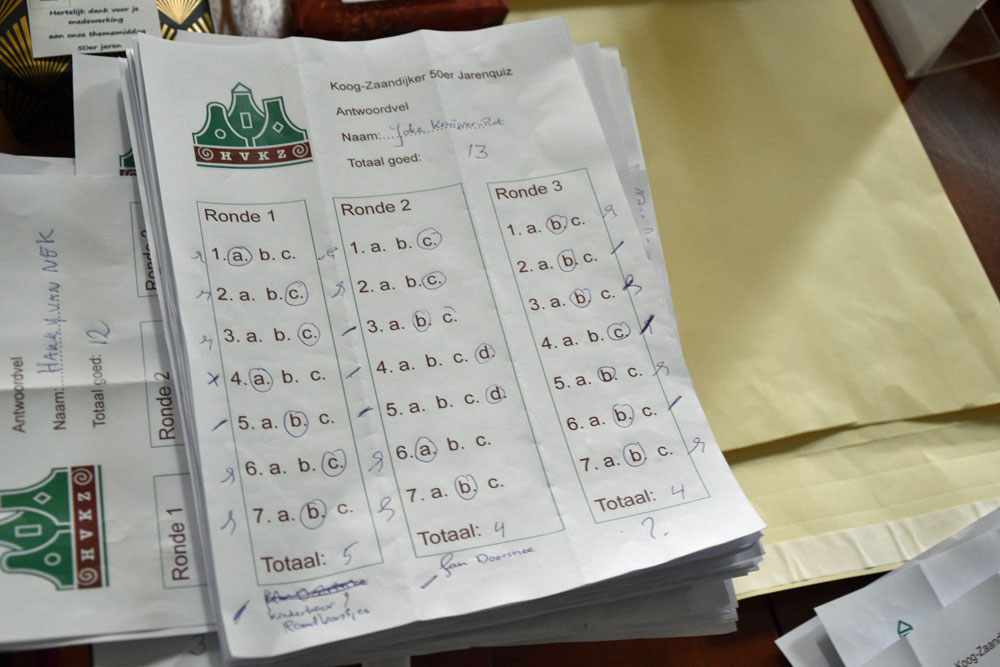 Hartelijk dank voor je
medewerking
aan onze themamiddag
50er jaren
Koog-Zaandijker 50er Jarenquiz
Antwoordvel
Naam:
Totaal goed: 13
HVKZ
Ronde 1
1. a. b. c.
2. a. b. c.
3. a. b. c.
4. a. b. c.
5. a. b. c.
6. a. b. c.
7. a. b. c.
Totaal: 5
Ronde 2
1. a. b. c.
2. a. b. c.
3. a. b. c.
4. a. b. c. d.
5. a. b. c. d.
6. a. b. c.
7. a. b. c.
Totaal: 4
Jan
Ronde 3
1. a. b. c.
2. a. b. c.
3. a. b. c.
4. a. b. c.
5. a. b. c.
6. a. b. c.
7. a. b. c.
Totaal: 4
?
Antwoordvel
Naam: HARRY VAN NEK
Totaal goed: 12
HVKZ
Ronde 1
Ronde 2
Ronde 3
Koog-Zaand